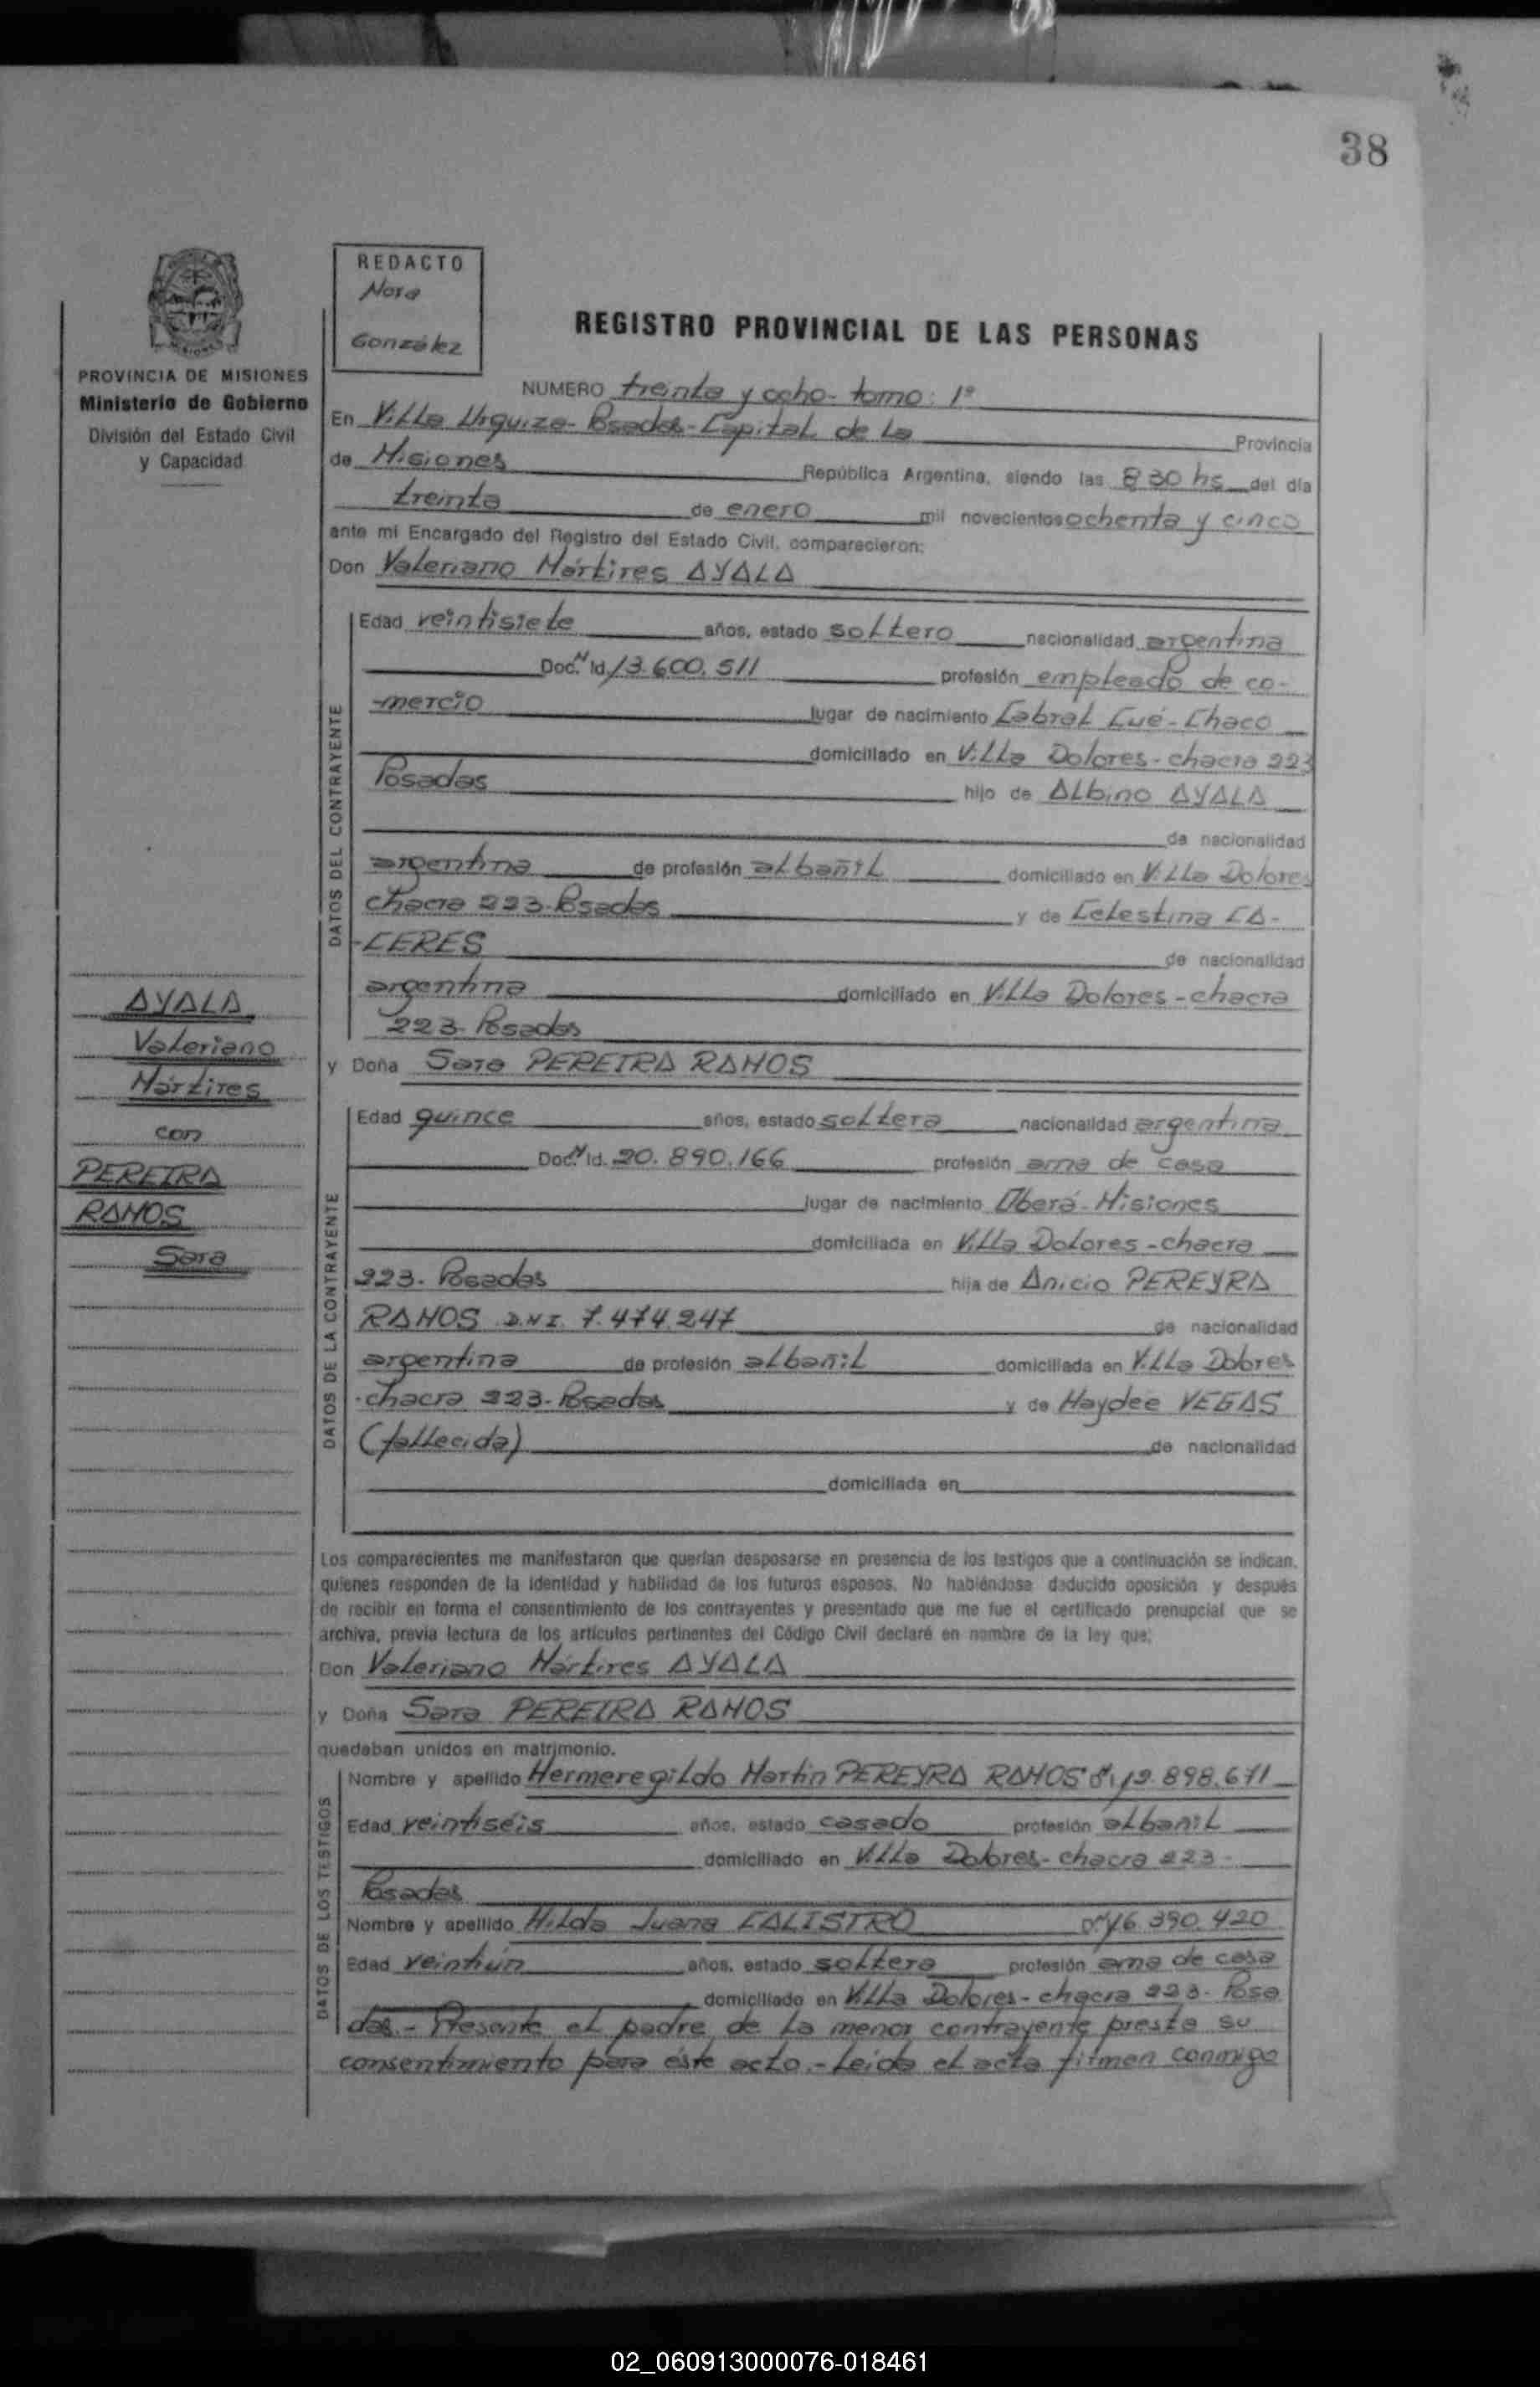 38
REDACTO
Nora
González
PROVINCIA DE MISIONES
Ministerio de Gobierno
División del Estado Civil
y Capacidad
REGISTRO PROVINCIAL DE LAS PERSONAS
NUMERO treinta y ocho- tomo: 1º
En Villa Urquiza- Posadas- Capital de la Provincia
de Misiones República Argentina, siendo las 8 30 hs del día
treinta de enero mil novecientos ochenta y cinco
ante mi Encargado del Registro del Estado Civil, comparecieron:
Don Valeriano Mártires AYALA
DATOS DEL CONTRAYENTE
Edad veintisiete años, estado soltero nacionalidad argentina
Doc. N Id. 13.600.511 profesión empleado de co-
-mercio lugar de nacimiento Cabral Cué- Chaco
domiciliado en Villa Dolores- chacra 223
Posadas hijo de Albino AYALA
de nacionalidad
argentina de profesión albañil domiciliado en Villa Dolores
chacra 223- Posadas y de Celestina CA-
-CERES de nacionalidad
argentina domiciliado en Villa Dolores - chacra
223- Posadas
y Doña Sara PEREIRA RAMOS
DATOS DE LA CONTRAYENTE
Edad quince años, estado soltera nacionalidad argentina
Doc. N Id. 20.890.166 profesión ama de casa
lugar de nacimiento Oberá- Misiones
domiciliada en Villa Dolores - chacra
223- Posadas hija de Anicio PEREYRA
RAMOS D.N.I. 7.474.247 de nacionalidad
argentina de profesión albañil domiciliada en Villa Dolores
- chacra 223- Posadas y de Haydee VEGAS
(fallecida) de nacionalidad
domiciliada en
Los comparecientes me manifestaron que querían desposarse en presencia de los testigos que a continuación se indican,
quienes responden de la identidad y habilidad de los futuros esposos. No habiéndose deducido oposición y después
de recibir en forma el consentimiento de los contrayentes y presentado que me fue el certificado prenupcial que se
archiva, previa lectura de los artículos pertinentes del Código Civil declaré en nombre de la ley que:
Don Valeriano Mártires AYALA
y Doña Sara PEREIRA RAMOS
quedaban unidos en matrimonio.
DATOS DE LOS TESTIGOS
Nombre y apellido Hermeregildo Martín PEREYRA RAMOS 12.898.671
Edad veintiséis años, estado casado profesión albañil
domiciliado en Villa Dolores- chacra 223-
Posadas
Nombre y apellido Hilda Juana CALISTRO 16.390.420
Edad veintiún años, estado soltera profesión ama de casa
domiciliado en Villa Dolores- chacra 223- Posa
das.- Presente el padre de la menor contrayente presta su
consentimiento para éste acto.- Leída el acta firman conmigo
AYALA
Valeriano
Mártires
con
PEREIRA
RAMOS
Sara
02_060913000076-018461